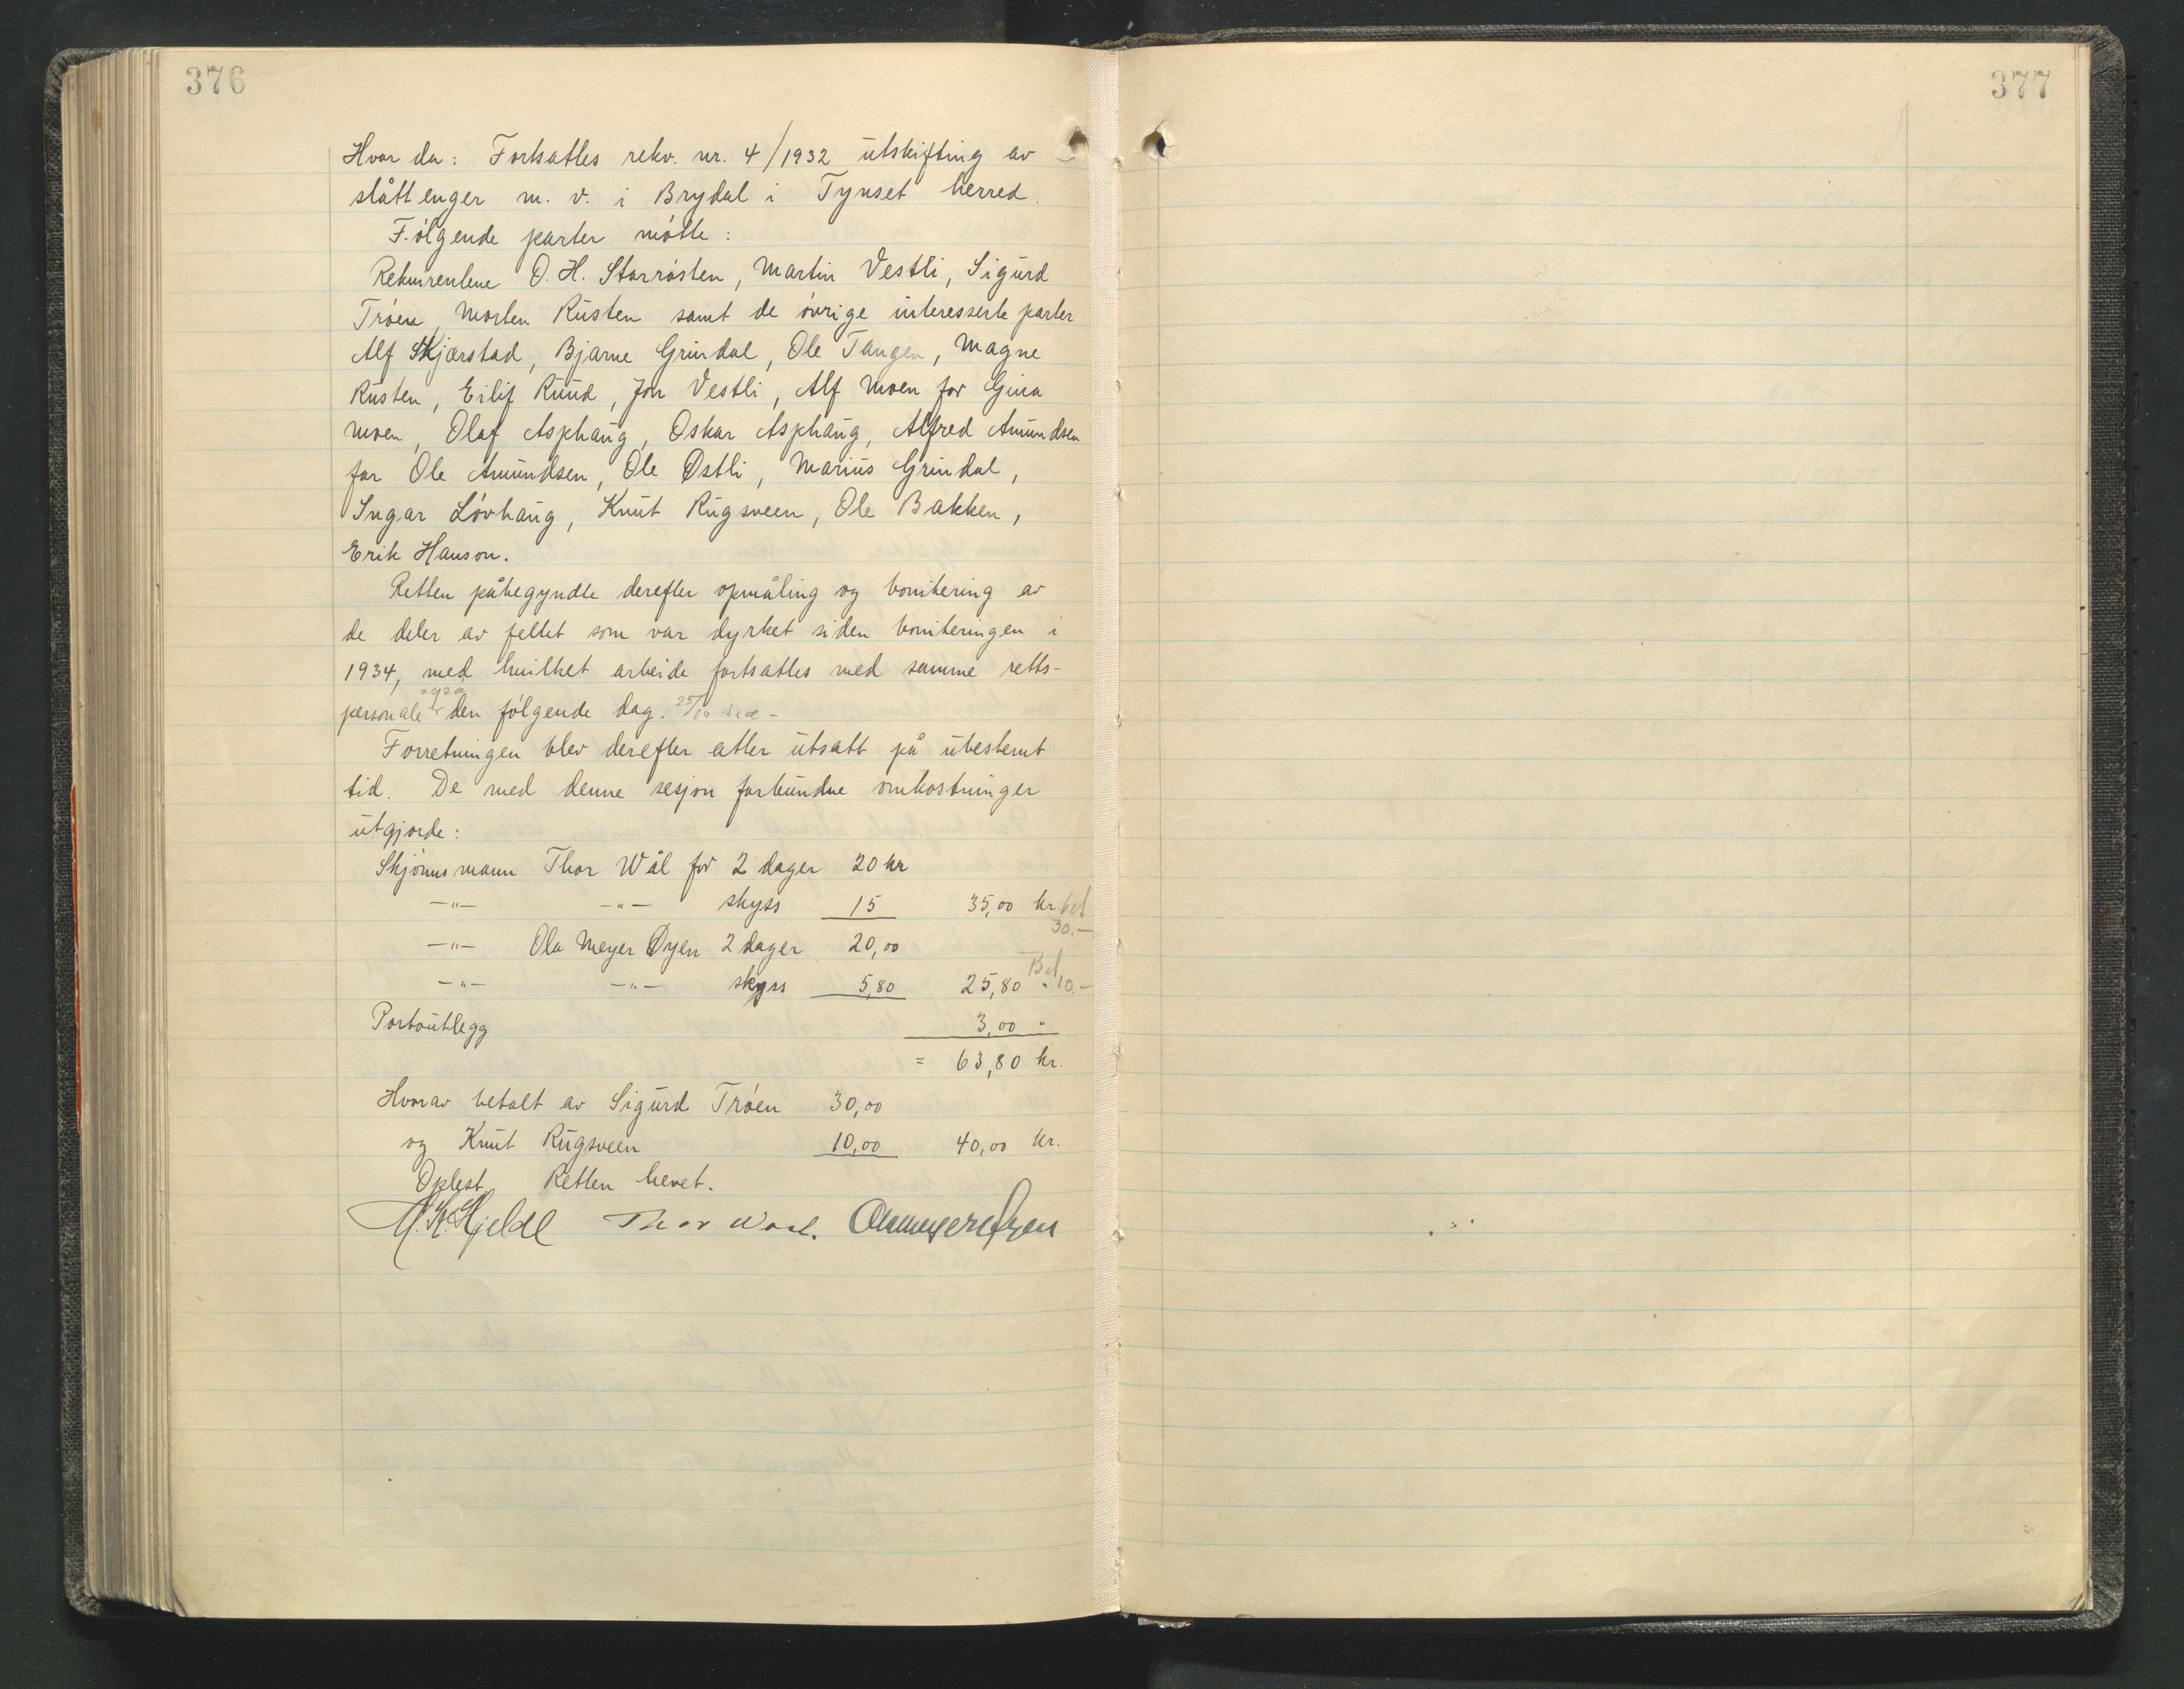 376
Hvor da: Fortsattes rekv. nr. 4/1932 utskifting av
slåttenger m. v. i Brydal i Tynset herred.
Følgende parter møtte:
Rekvirentene O. H. Storrøsten, Martin Vestli, Sigurd
Trøen, Morten Rusten samt de øvrige interesserte parter
Alf Skjærstad, Bjarne Grindal, Ole Tangen, Magne
Rusten, Eilif Ruud, Jon Vestli, Alf Moen for Gina
Moen, Olaf Asphaug, Oskar Asphaug, Alfred Amundsen
for Ole Amundsen, Ole Østli, Marius Grindal,
Ingar Løvhaug, Knut Rugsveen, Ole Bakken,
Erik Hanson.
Retten påbegyndte derefter opmåling og bonitering av
de deler av feltet som var dyrket siden boniteringen i
1934, med hvilket arbeide fortsattes med samme retts-
også
personale den følgende dag. 25/10
Forretningen blev derefter atter utsatt på ubestemt
tid. De med denne sesjon forbundne omkostninger
utgjorde:
Skjønnsmann Thor Wål for 2 dager 20 kr
—"— —"— skyss 15 35,00 kr. bet
30.—
—"— Ola Meyer Øyen 2 dager 20,00
—"— —"— skyss 5,80 25,80 " Bet 10.—
Portoutlegg 3,00 "
= 63,80 kr.
Hvorav betalt av Sigurd Trøen 30,00
og Knut Rugsveen 10,00 40,00 kr.
Oplest. Retten hevet.
Thor Waal. Ola Meyer Øyen
377